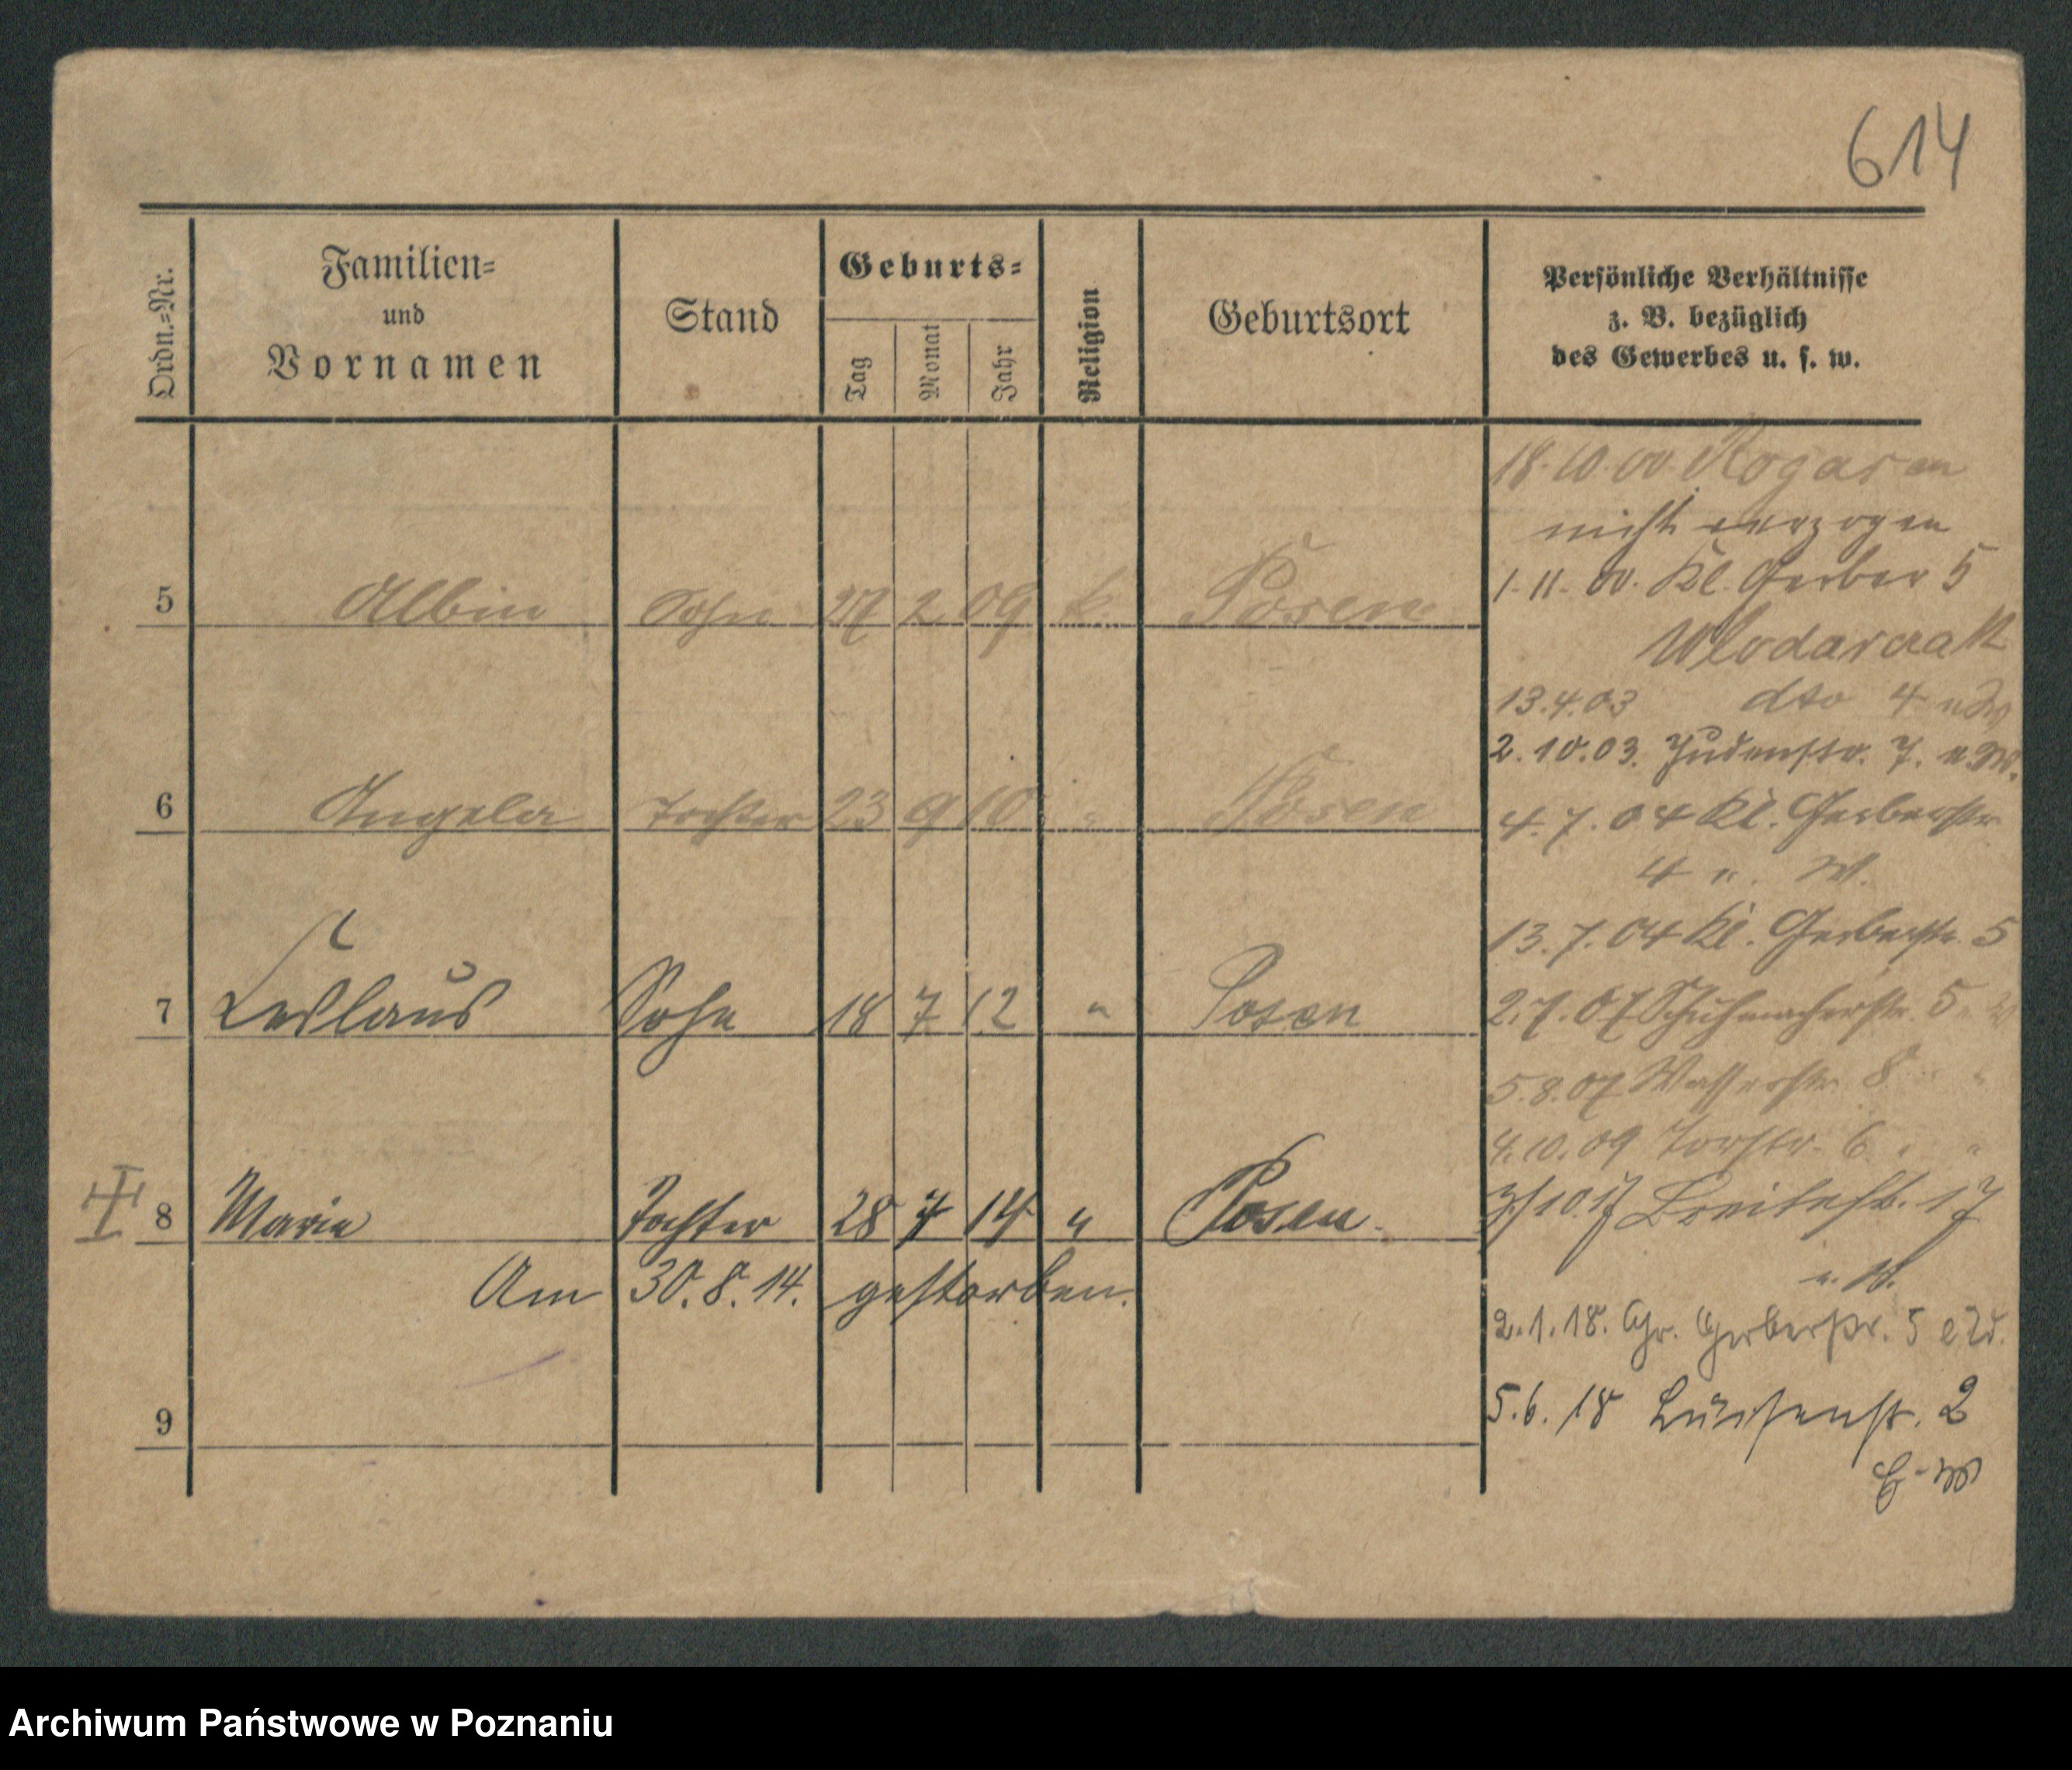 614
Ordn.-Nr.
Familien-
und
Vornamen
Stand
Geburts-
Tag
Monat
Jahr
Religion
Geburtsort
Persönliche Verhältnisse
z. B. bezüglich
des Gewerbes u. s. w.
5 Albin Sohn 27 2 09 k. Posen
6 Angela Tochter 23 9 10 " Posen
7 Leslaus Sohn 18 7 12 " Posen
8 Marie Tochter 28 7 14 " Posen.
Am 30.8.14. gestorben.
9
18.10.00.
nicht verzogen
1.11.00. Kl. Gerber 5
Wlodarczak
13.4.03 dto 4
2.10.03. Judenstr. 7.
4.7.04 Kl. Gerberstr.
4 " W.
13.7.04 Kl. Gerberstr. 5
2.7.07 Schuhmacherstr. 5
5.8.07 Wasserstr. 8 "
4.10.09 Torstr. 6 " "
10.17 Breitestr. 17
2.1.18. Gr. Gerberstr. 5
5.6.18 Luisenstr. 2
Archiwum Państwowe w Poznaniu